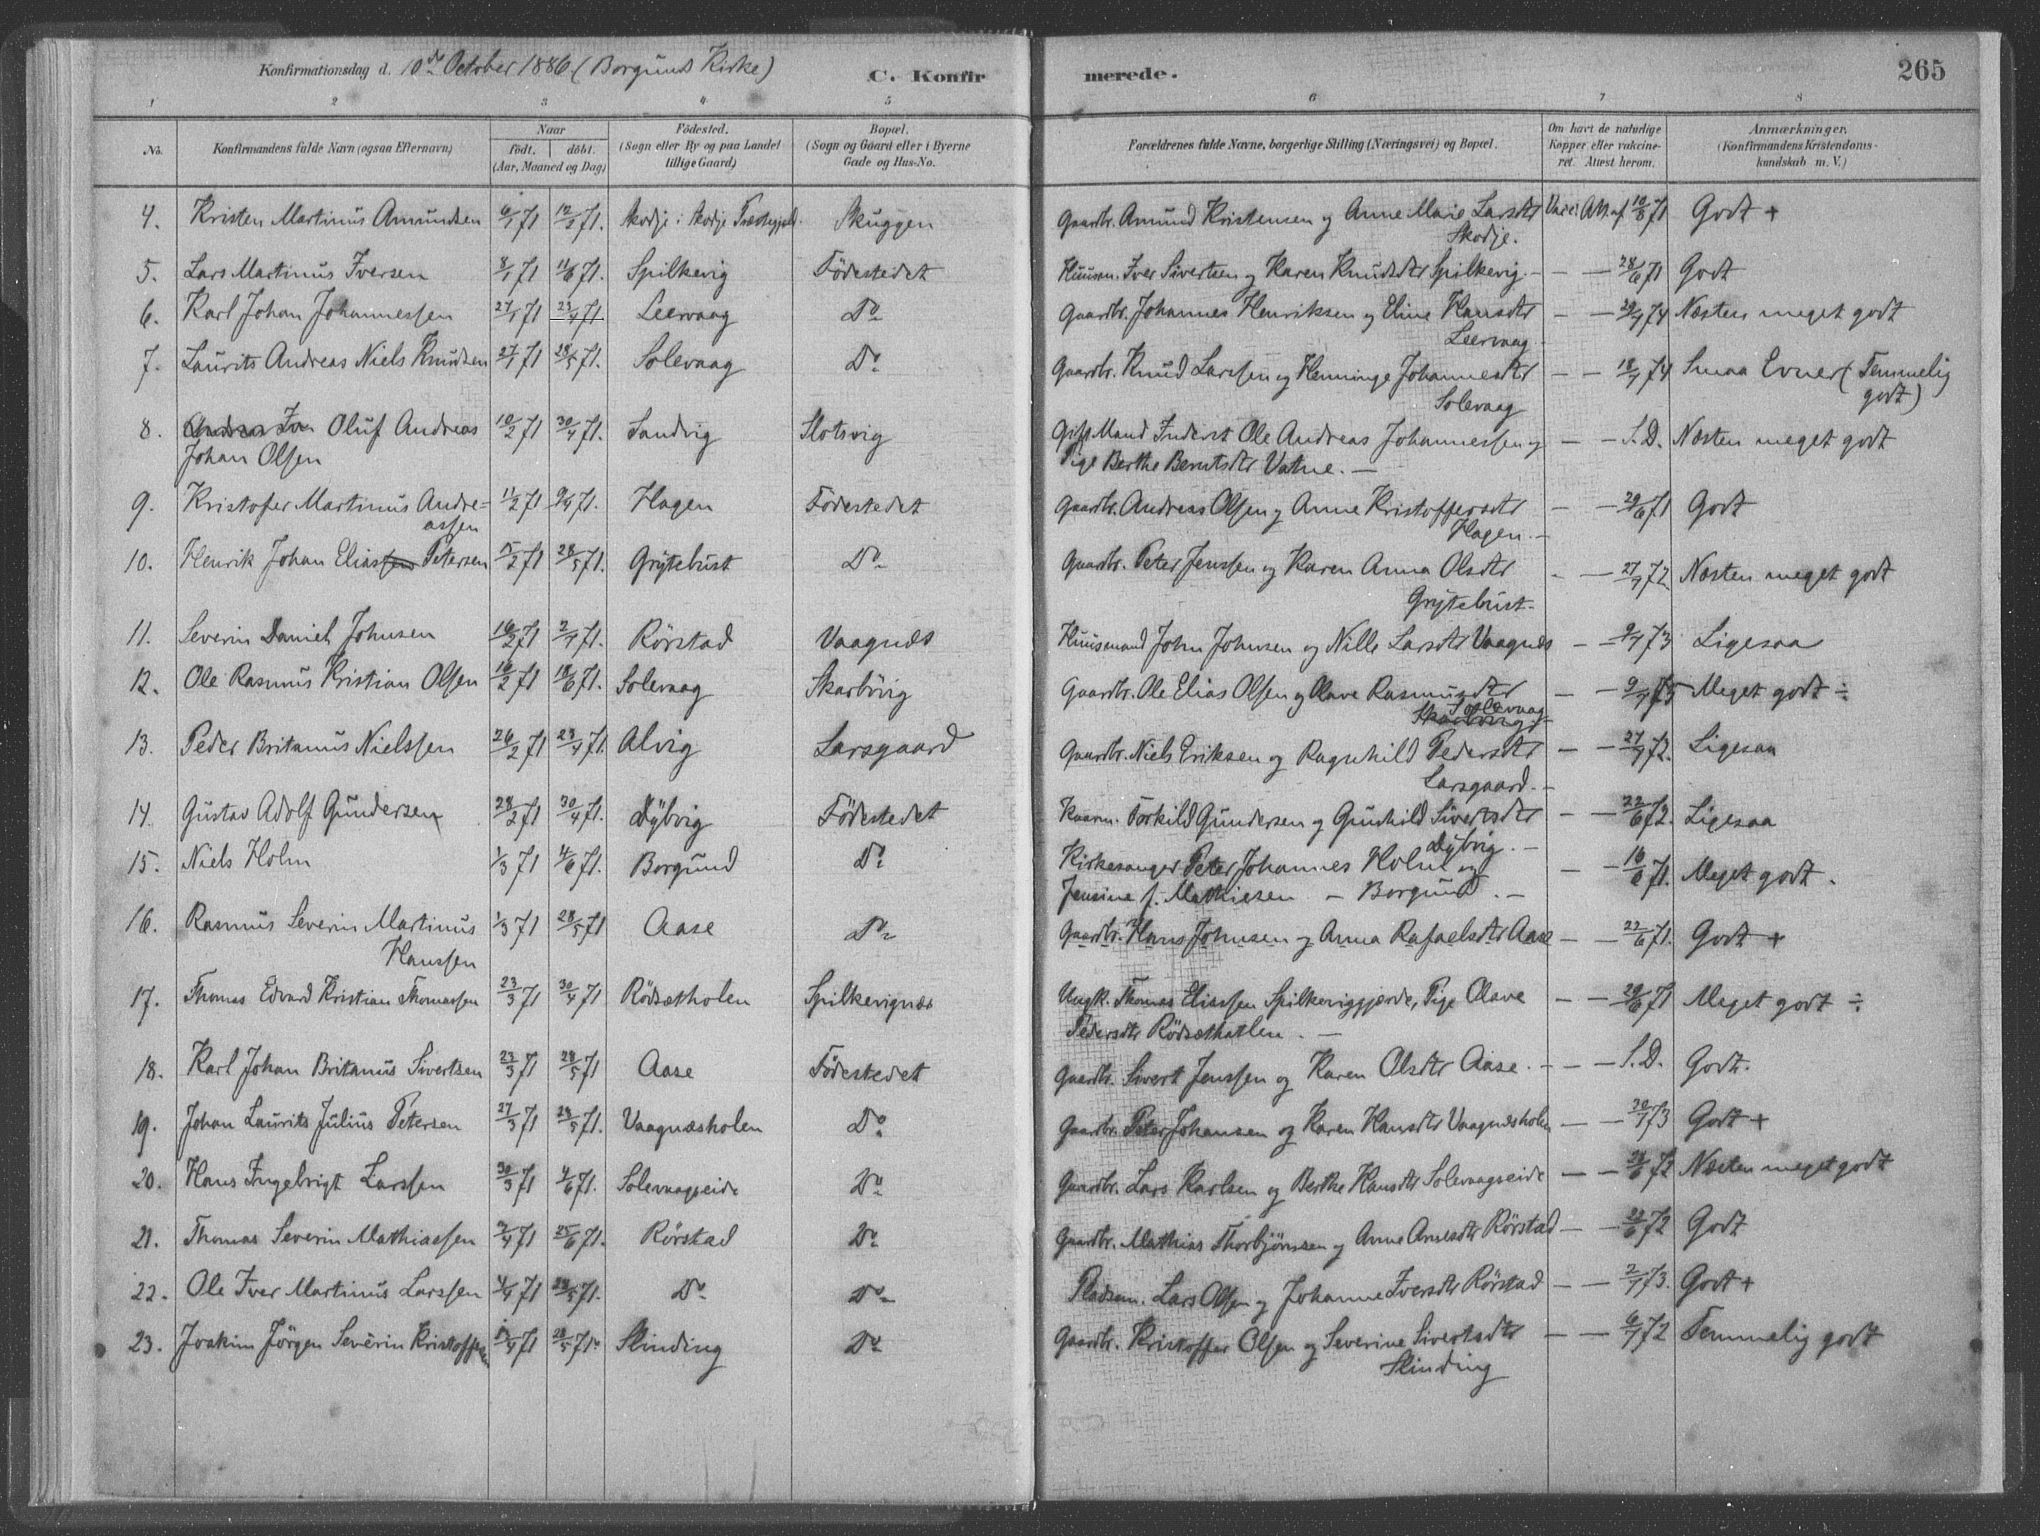 Konfirmationsdag d. 10de October 1886 (Borgund Kirke) C. Konfirmerede. 265
1 2 3 4 5 6 7 8
No. Konfirmandens fulde Navn (ogsaa Efternavn) Naar födt. döbt. (Aar, Maaned og Dag) Födested. (Sogn eller By og paa Landet tillige Gaard) Bopæl. (Sogn og Gaard eller i Byerne Gade og Hus-No. Forældrenes fulde Navne, borgerlige Stilling (Næringsvei) og Bopæl. Om havt de naturlige Kopper eller vakcineret. Attest herom. Anmærkninger. (Konfirmandens Kristendomskundskab m. V.)
4. Kristen Martinus Amundsen 6/1 71 12/2 71. Skodje i Skodje Præstegjeld. Skuggen Gaardbr. Amund Kristensen og Anne Marie Larsdtr Skodje. Vacci. Att. af 10/8 71 Godt +
5. Lars Martinus Iversen 8/1 71 11/6 71. Spilkevig Födestedet Huusm. Iver Sivertsen og Karen Knudsdtr Spilkevig. — — 28/6 71 Godt
6. Karl Johan Johannessen 27/1 71 23/4 71. Leervaag Do Gaardbr. Johannes Henriksen og Eline Hansdtr Leervaag — — 29/9 74 Næsten meget godt
7. Laurits Andreas Niels Knudsen 27/1 71 28/5 71. Solevaag Do Gaardbr. Knud Larssen og Henninge Johannesdtr Solevaag — — 18/9 74 Smaa Evner (Temmelig godt)
8. Oluf Andreas Johan Olsen 10/2 71 30/4 71. Sandvig Slotsvig Gift Mand Inderst Ole Andreas Johannessen og Pige Berthe Berntsdtr Vatne. — — — S.D. Næsten meget godt
9. Kristofer Martinus Andreassen 11/2 71 9/4 71. Hagen Födestedet Gaardbr. Andreas Olsen og Anne Kristoffersdtr Hagen. — — — 29/6 71 Godt
10. Henrik Johan Eliassen Petersen 15/2 71 28/5 71. Grytebust Do Gaardbr. Peter Jenssen og Karen Anna Olsdtr Grytebust. — — 27/9 72 Næsten meget godt
11. Severin Daniel Johnsen 16/2 71 2/4 71. Rörstad Vaagnæs Huusmand John Johnsen og Nille Larsdtr Vaagnæs — — 9/7 73 Ligesaa
12. Ole Rasmus Kristian Olsen 16/2 71 18/6 71. Solevaag Skarbövig Gaardbr. Ole Elias Olsen og Olave Rasmusdtr Solevaag Skarbövig — — 9/9 75 Meget godt ÷
13. Peder Britanus Nielssen 26/2 71 23/4 71. Alvig Larsgaard Gaardbr. Niels Eriksen og Ragnhild Pedersdtr Larsgaard. — — — 27/9 72. Ligesaa
14. Gustav Adolf Gundersen 28/2 71 30/4 71. Dybvig Födestedet Kaarm. Torkild Gundersen og Gunhild Sivertsdtr Dybvig. — — — 22/6 72. Ligesaa
15. Niels Holm 1/3 71 4/6 71. Borgund Do Kirkesanger Peter Johannes Holm og Jensine f. Mathiesen — Borgund. — — — 16/6 71. Meget godt.
16. Rasmus Severin Martinus Hanssen 1/3 71 28/5 71 Aase Do Gaardbr. Hans Johnsen og Anna Rafaelsdtr Aase — — 22/6 71. Godt +
17. Thomas Edvard Kristian Thomassen 23/3 71 30/4 71 Rödsætholen Spilkevignæs Ungk. Thomas Elissen Spilkeviggjerde, Pige Olave Pedersdtr Rödsæthatlen. — — — 29/6 71 Meget godt ÷
18. Karl Johan Britanus Sivertsen 23/3 71 28/5 71 Aase Födestedet Gaardbr. Sivert Jenssen og Karen Olsdtr Aase. — — — S.D. Godt.
19. Johan Laurits Julius Petersen 27/3 71 28/5 71. Vaagnæsholen Do Gaardbr. Peter Johansen og Karen Hansdtr Vaagnæsholen — — 30/7 73 Godt +
20. Hans Ingebrigt Larssen 30/3 71 4/6 71. Solevaagseide Do Gaardbr. Lars Karlsen og Berthe Hansdtr Solevaagseide — — 28/6 72 Næsten meget godt
21. Thomas Severin Mathiassen 2/4 71 25/6 71. Rörstad Do Gaardbr. Mathias Thorbjörnsen og Anne Arnesdtr Rörstad — — 22/6 72 Godt
22. Ole Iver Martinus Larssen 4/4 71 28/5 71. Do Do Pladsm. Lars Olsen og Johanne Iversdtr Rörstad — — 2/7 73. Godt +
23. Joakim Jörgen Severin Kristoffersen 15/4 71 28/5 71. Slinding Do Gaardbr. Kristoffer Olsen og Severine Sivertsdtr Slinding — — 6/7 72 Temmelig godt